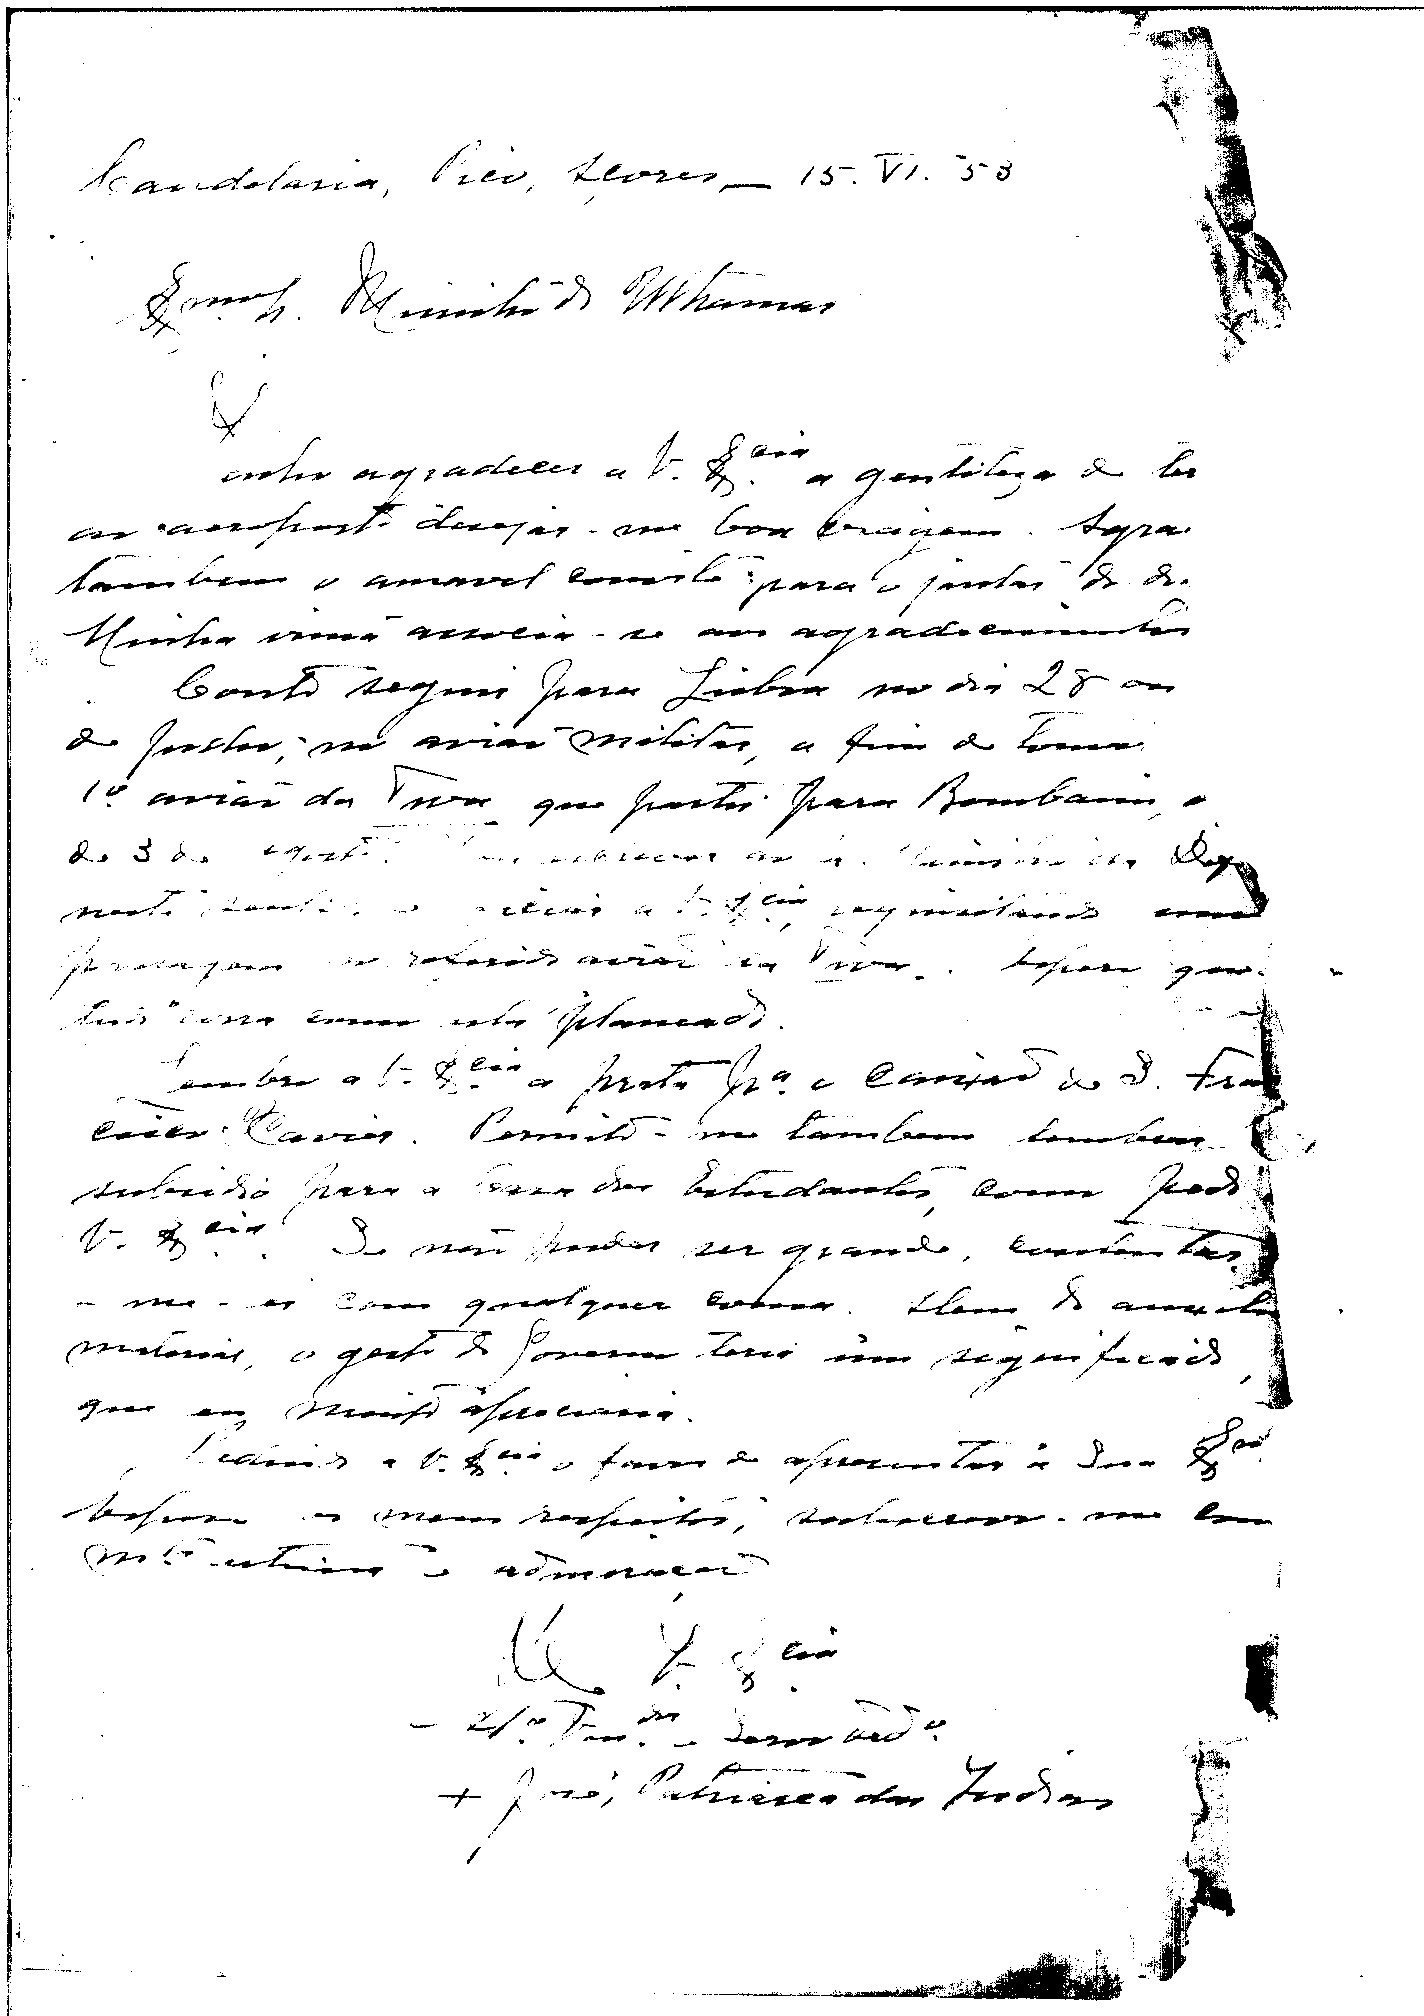 Candelaria, Pico, Açores, — 15. VI. 53
Exmo Sr. Ministro do Ultramar
Venho agradecer a V. Excia a gentileza de ter
ao aeroporto desejar-me boa viagem. Agra
tambem o amavel convite para o jantar de
Minha irmã associa-se aos agradecimentos
Conto seguir para Lisboa no dia 28 ou
de Julho, no avião militar, a fim de tomar
1º avião da Twa que partir para Bombaim, o
de 3 de agosto. escrever ao Sr. Ministro da
neste sentido e a V. Excia, requisitando uma
passagem no referido avião da Twa. Espero que
tudo corra como está planeado.
Lembro a V. Excia a prata pa o caixão de S. Fran
cisco Xavier. Permito-me tambem lembrar
subsidio para a Casa dos Estudantes, como pedi
V. Excia. Se não puder ser grande, contentar-
-me-ei com qualquer coisa. Alem do auxilio
material, o gesto do Governo teria um significado,
que eu muito apreciaria.
Pedindo a V. Excia o favor de apresentar à Sua Exma
Esposa os meus respeitos, subscrevo-me com
mta estima e admiração
De V. Excia
Mto Vendor e
+ José, Patriarca das Indias